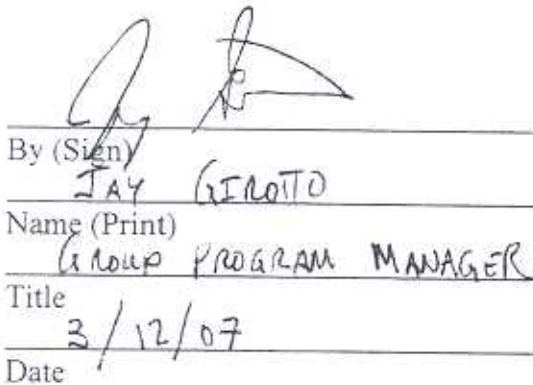 By (Sign)
JAY GIROTTO
Name (Print)
GROUP PROGRAM MANAGER
Title
3/12/07
Date